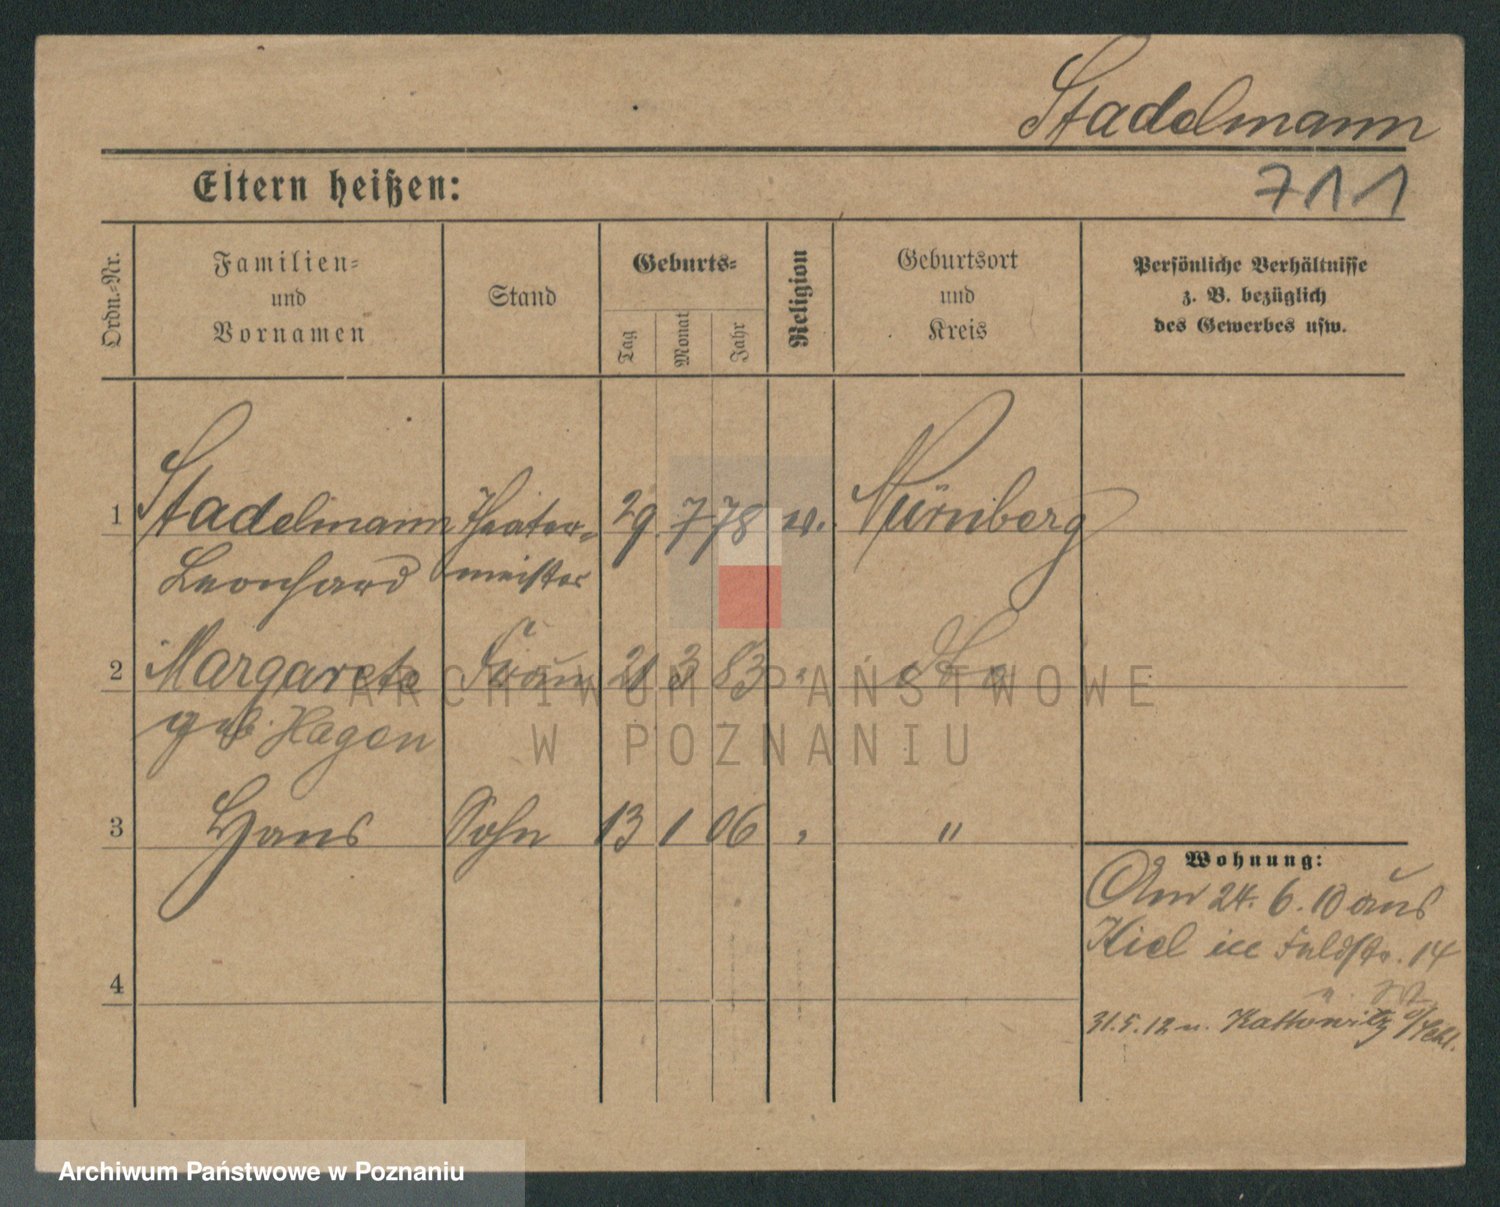 Stadelmann
711
Eltern heißen:
Ordn.-Nr.
Familien-
und
Vornamen
Stand
Geburts-
Tag
Monat
Jahr
Religion
Geburtsort
und
Kreis
Persönliche Verhältnisse
z. B. bezüglich
des Gewerbes usw.
1 Stadelmann Theater- 29 7 78 ev. Nürnberg
Leonhard meister
2 Margarete Frau 21 3 83 " dto
geb. Hagen
3 Hans Sohn 13 1 06 " "
4
Wohnung:
Am 24. 6. 10 aus
Kiel Feldstr. 14
31.5.12 n. Kattowitz
ARCHIWUM PAŃSTWOWE
W POZNANIU
Archiwum Państwowe w Poznaniu